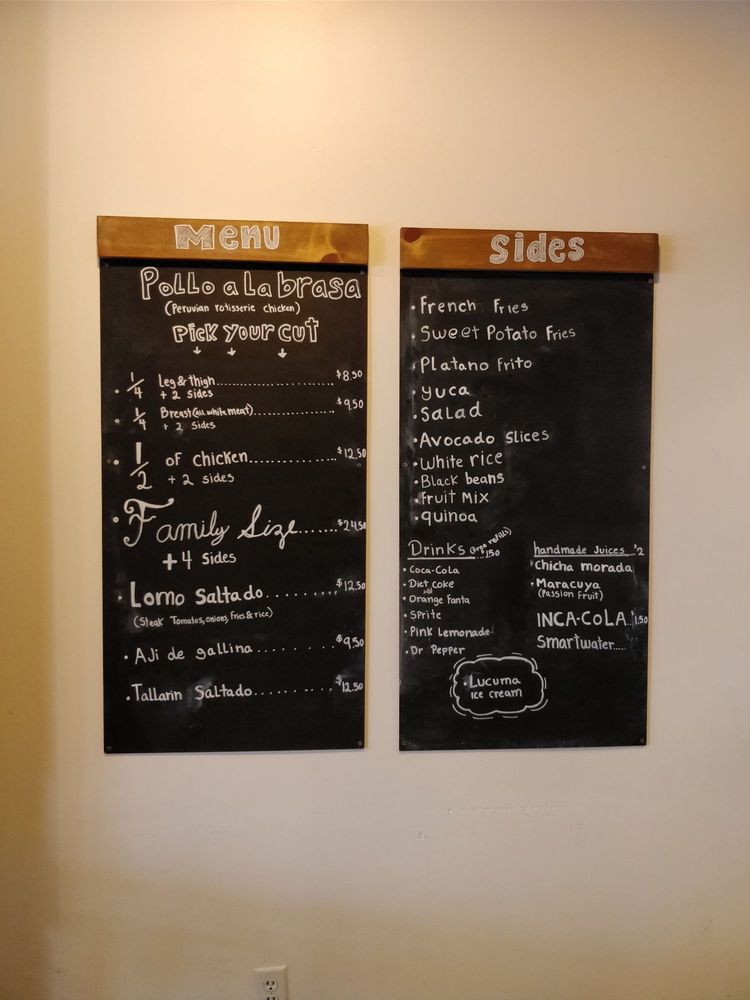 Menu
Pollo a La brasa
(Peruvian rotisserie chicken)
Pick your cut
1/4 Leg & thigh.................. $8.50
+ 2 sides
1/4 Breast (all white meat)............ $9.50
+ 2 sides
1/2 of chicken............ $12.50
+ 2 sides
Family Size....... $24.50
+4 Sides
Lomo Saltado......... $12.50
(Steak Tomatoes, onions, fries & rice)
Aji de gallina......... $9.50
Tallarin Saltado......... $12.50
Sides
French Fries
Sweet Potato Fries
Platano Frito
Yuca
Salad
Avocado Slices
White rice
Black beans
fruit Mix
quinoa
Drinks (free refills) $1.50
Coca-Cola
Diet coke
Orange Fanta
Sprite
Pink Lemonade
Dr Pepper
handmade Juices...$2
Chicha morada
Maracuya
(Passion Fruit)
INCA-COLA..$1.50
Smartwater.....
Lucuma
ice cream